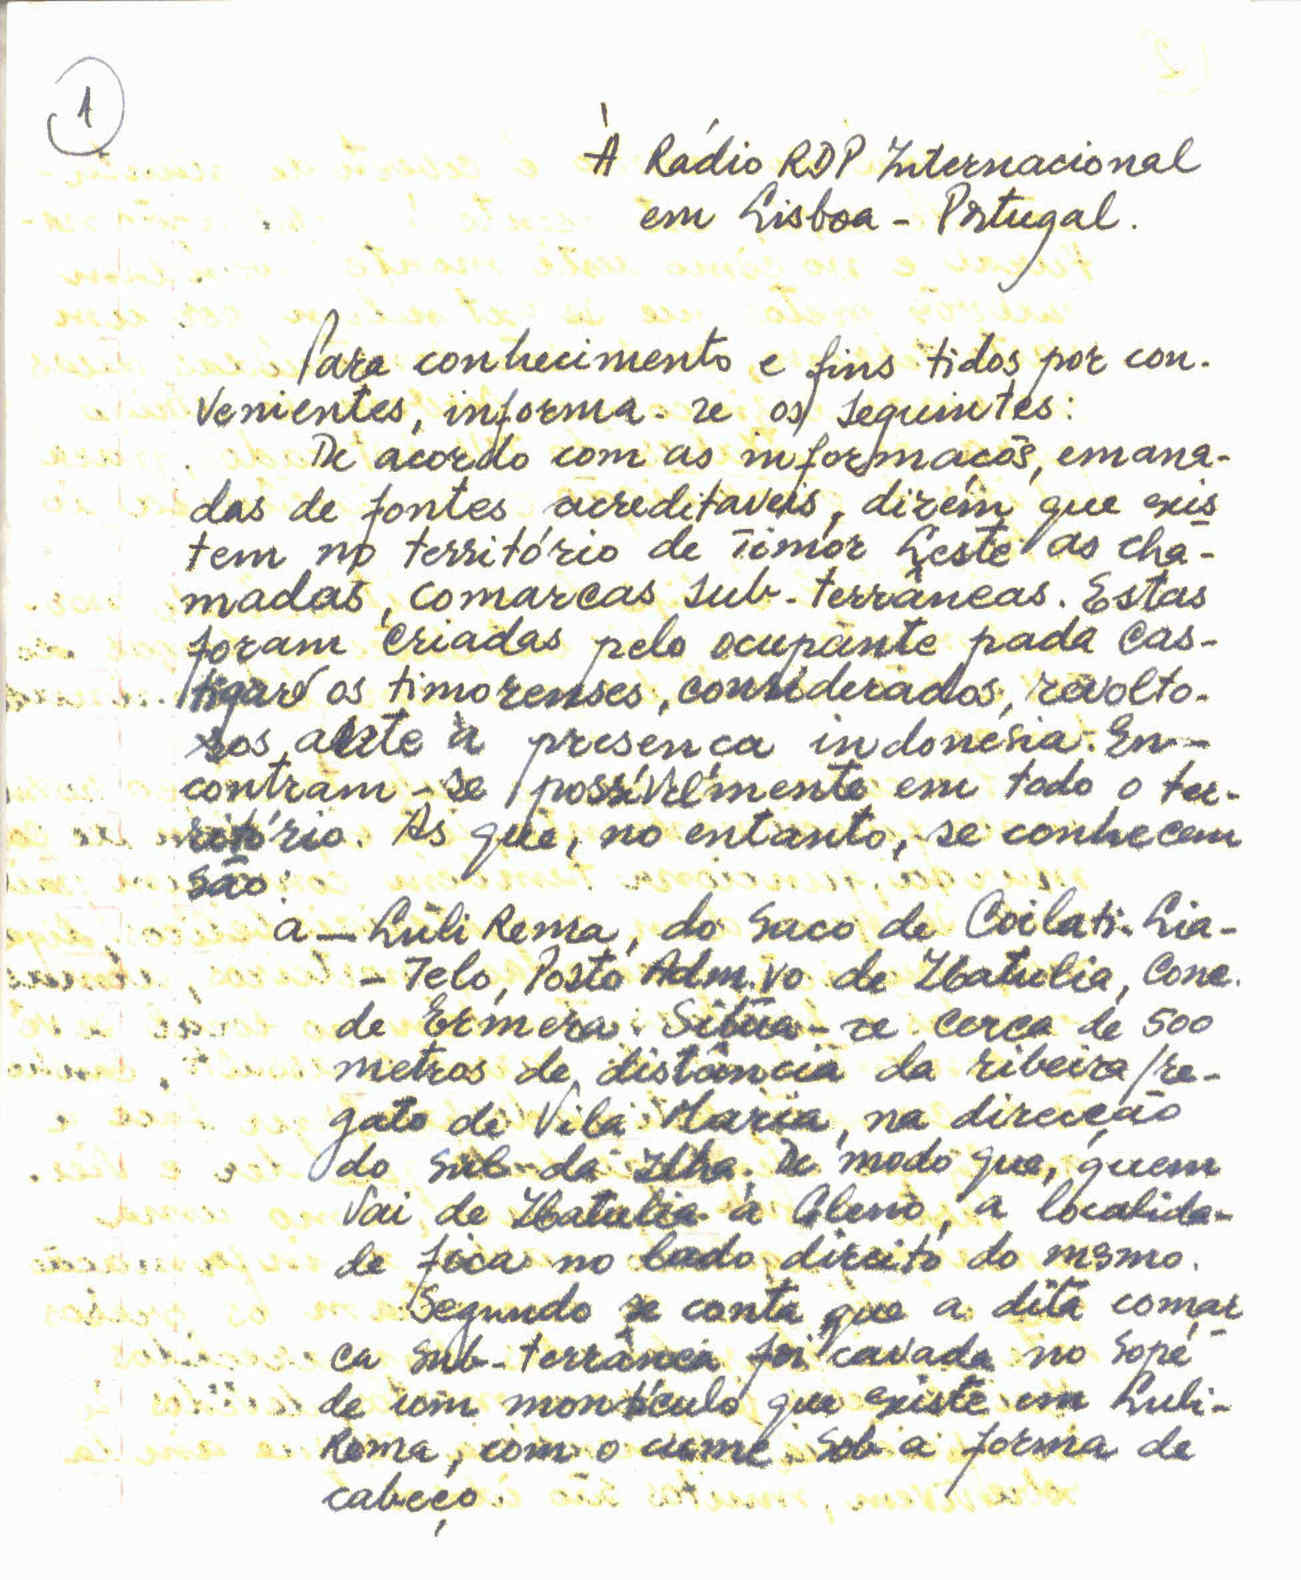 1
À Rádio RDP Internacional
em Lisboa - Portugal.
Para conhecimento e fins tidos por con-
venientes, informa-se os seguintes:
De acordo com as informacõs, emana-
das de fontes acreditaveis, dizem que exis
tem no território de Timor Leste as cha-
madas, comarcas sub-terrâneas. Estas
foram criadas pelo ocupante pada cas-
tigaré os timorenses, considerados, revolto-
sos, ante à presenca indonésia. En-
contram-se possívelmente em todo o ter-
ritório. As que, no entanto, se conhecem
são:
a - Lúli Rema, do Suco de Coilati-Lia-
- Telo, Posto Adm.vo de Hatulia, Conc.
de Ermera. Situa-se cerca de 500
metros de distância da ribeira/re-
gato de Vila Maria, na direcção
do Sul da Ilha. De modo que, quem
vai de Hatulia à Gleno, a localida-
de fica no lado direito do mesmo.
Segundo se conta que a dita comar
ca sub-terrânea foi cavada no sopé
de um montículo que existe em Luli-
Rema, com o cume sob a forma de
cabeço